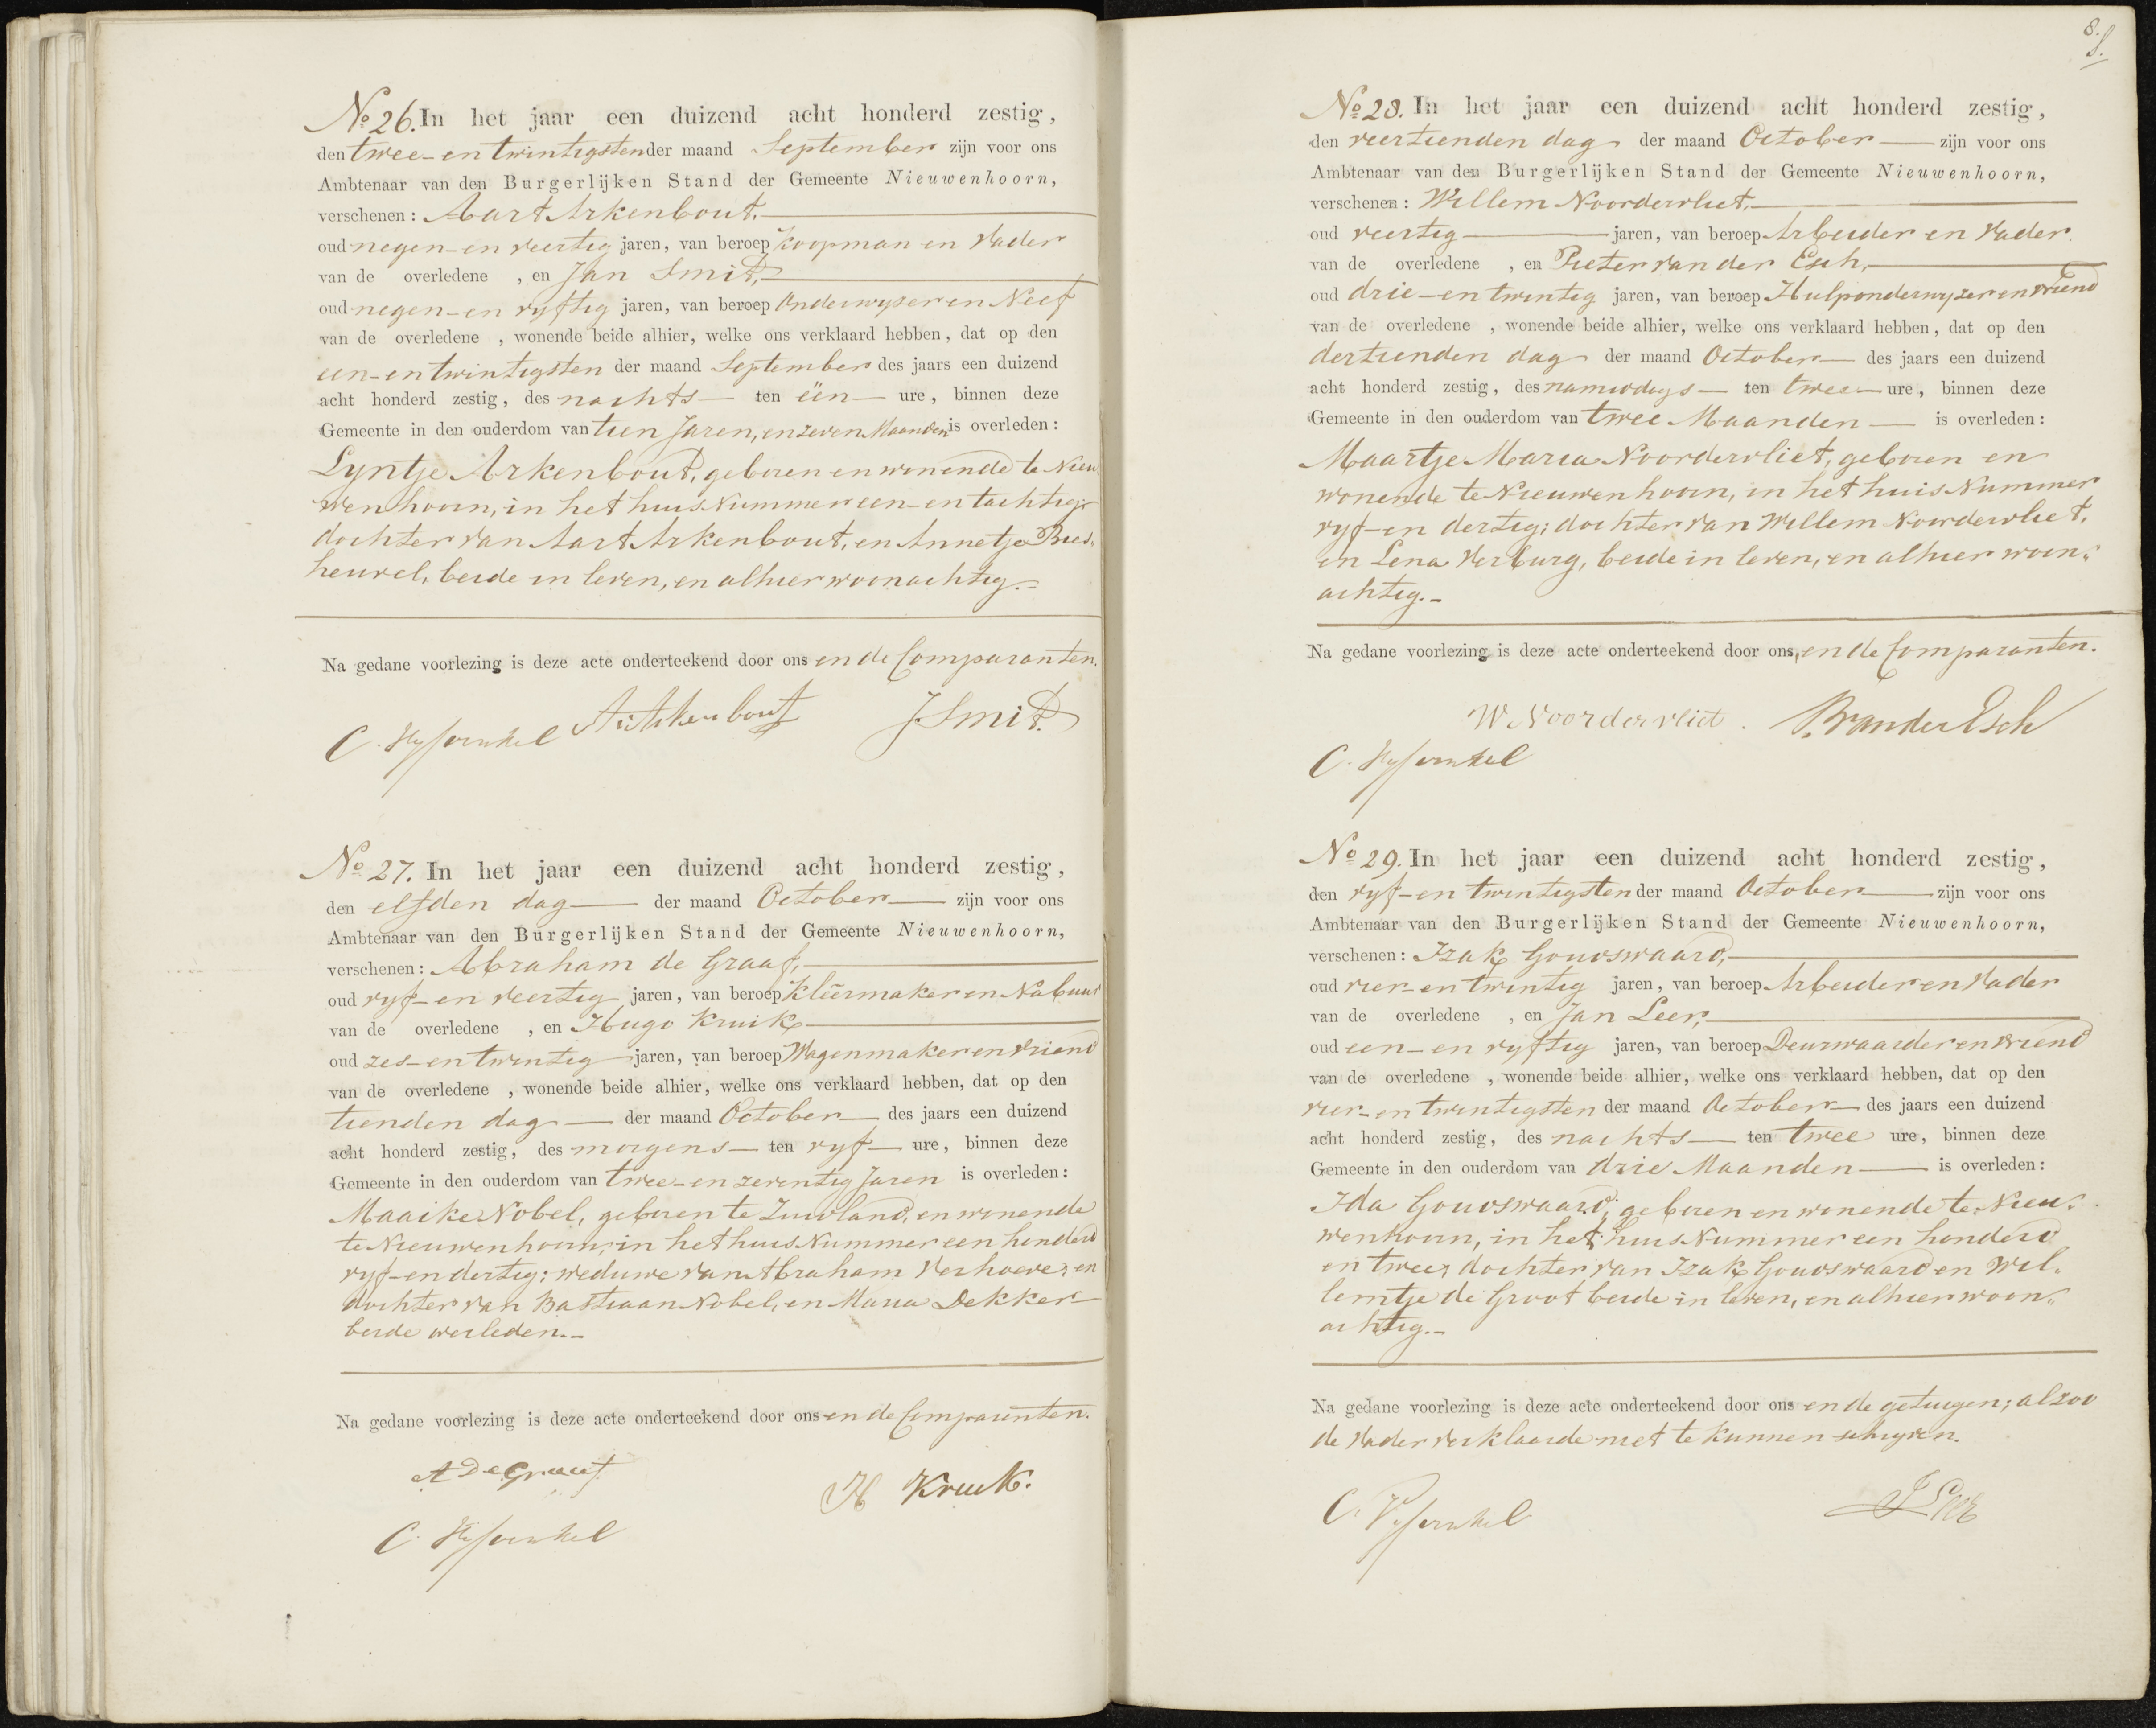 No 26. In het jaar een duizend acht honderd zestig,
den twee-en twintigsten der maand September zijn voor ons
Ambtenaar van den Burgerlijken Stand der Gemeente Nieuwenhoorn,
verschenen: Aart Arkenbout,
oud negen-en veertig jaren, van beroep Koopman en Vader
van de overledene , en Jan Smit,
oud negen-en vyftig jaren, van beroep Onderwyzer en Neef
van de overledene , wonende beide alhier, welke ons verklaard hebben, dat op den
een-en twintigsten der maand September des jaars een duizend
acht honderd zestig, des nachts ten één ure, binnen deze
Gemeente in den ouderdom van tien Jaren, en zeven Maanden is overleden:
Lyntje Arkenbout, geboren en wonende te Nieu
wenhoorn, in het huis Nummer een-en tachtig;
dochter van Aart Arkenbout, en Annetje Bies-
heuvel, beide in leven, en alhier woonachtig.-
Na gedane voorlezing is deze acte onderteekend door ons en de Comparanten.
A Arkenbout J. Smit.
C.
No 27. In het jaar een duizend acht honderd zestig,
den elfden dag der maand October zijn voor ons
Ambtenaar van den Burgerlijken Stand der Gemeente Nieuwenhoorn,
verschenen: Abraham de Graaf,
oud vyf-en veertig jaren, van beroep Kléermaker en Nabuur
van de overledene , en Hugo Kruik
oud zes-en twintig jaren, van beroep Wagenmaker en Vriend
van de overledene , wonende beide alhier, welke ons verklaard hebben, dat op den
tienden dag der maand October des jaars een duizend
acht honderd zestig, des morgens ten vyf ure, binnen deze
Gemeente in den ouderdom van twee-en zeventig Jaren is overleden:
Maaike Nobel, geboren te Zuidland, en wonende
te Nieuwenhoorn, in het huis Nummer een honderd
vyf-en dertig; weduwe van Abraham Verhoeve; en
dochter van Bastiaan Nobel, en Maria Dekker
beide overleden.-
Na gedane voorlezing is deze acte onderteekend door ons en de Comparanten.
A De Graaf
H Kruik.
C.
8.
No 28. In het jaar een duizend acht honderd zestig,
den veertienden dag der maand October zijn voor ons
Ambtenaar van den Burgerlijken Stand der Gemeente Nieuwenhoorn,
verschenen: Willem Noordervliet,
oud veertig jaren, van beroep Arbeider en Vader
van de overledene , en Pieter van der Esch,
oud drie-en twintig jaren, van beroep Hulponderwyzer en Vriend
van de overledene , wonende beide alhier, welke ons verklaard hebben, dat op den
dertienden dag der maand October des jaars een duizend
acht honderd zestig, des namiddags ten twee ure, binnen deze
Gemeente in den ouderdom van twee Maanden is overleden:
Maartje Maria Noordervliet, geboren en
wonende te Nieuwenhoorn, in het huis Nummer
vyf-en dertig; dochter van Willem Noordervliet,
en Lena Verburg, beide in leven, en alhier woon-
achtig.-
Na gedane voorlezing is deze acte onderteekend door ons, en de Comparanten.
W Noordervliet. P. van der Esch
C.
No 29. In het jaar een duizend acht honderd zestig,
den vyf-en twintigsten der maand October zijn voor ons
Ambtenaar van den Burgerlijken Stand der Gemeente Nieuwenhoorn,
verschenen: Izak Gouwswaard,
oud vier-en twintig jaren, van beroep Arbeider en Vader
van de overledene , en Jan Leer,
oud een-en vyftig jaren, van beroep Deurwaarder en Vriend
van de overledene , wonende beide alhier, welke ons verklaard hebben, dat op den
vier-en twintigsten der maand October des jaars een duizend
acht honderd zestig, des nachts ten twee ure, binnen deze
Gemeente in den ouderdom van drie Maanden is overleden:
Ida Gouwswaard, geboren en wonende te Nieu-
wenhoorn, in het huis Nummer een honderd
en twee; dochter van Izak Gouwswaard en Wil-
lemtje de Groot beide in leven, en alhier woon-
achtig.-
Na gedane voorlezing is deze acte onderteekend door ons en de getuigen; alzoo
de Vader verklaarde niet te kunnen schryven.
C.
J Leer